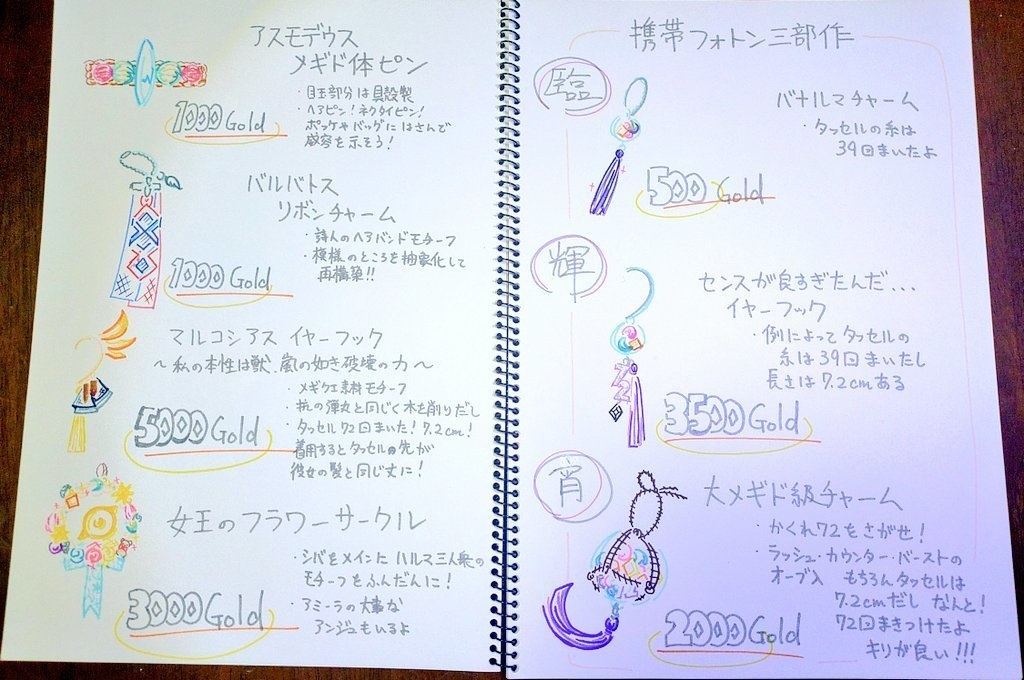 アスモデウス
メギド体ピン
・目玉部分は貝殻製
・ヘアピン!ネクタイピン!
ポッケやバッグにはさんで
威容を示そう!
1000 Gold
バルバトス
リボンチャーム
・詩人のヘアバンドモチーフ
・模様のところを抽象化して
再構築!!
1000 Gold
マルコシアス イヤーフック
〜私の本性は獣.嵐の如き破壊の力〜
・メギクエ素材モチーフ
・杭の弾丸と同じく木を削りだし
・タッセル72回まいた!7.2cm!
着用するとタッセルの先が
彼女の髪と同じ丈に!
5000 Gold
女王のフラワーサークル
・シバをメインに ハルマ三人衆の
モチーフをふんだんに!
・アミーラの大事な
アンジュもいるよ
3000 Gold
携帯フォトン三部作
臨
バナルマチャーム
・タッセルの糸は
39回まいたよ
500 Gold
輝
センスが良すぎたんだ...
イヤーフック
・例によってタッセルの
糸は39回まいたし
長さは7.2cmある
72
3500 Gold
宵
大メギド級チャーム
・かくれ72をさがせ!
・ラッシュ・カウンター・バーストの
オーブ入 もちろんタッセルは
7.2cmだし なんと!
72回まきつけたよ
キリが良い!!!
2000 Gold